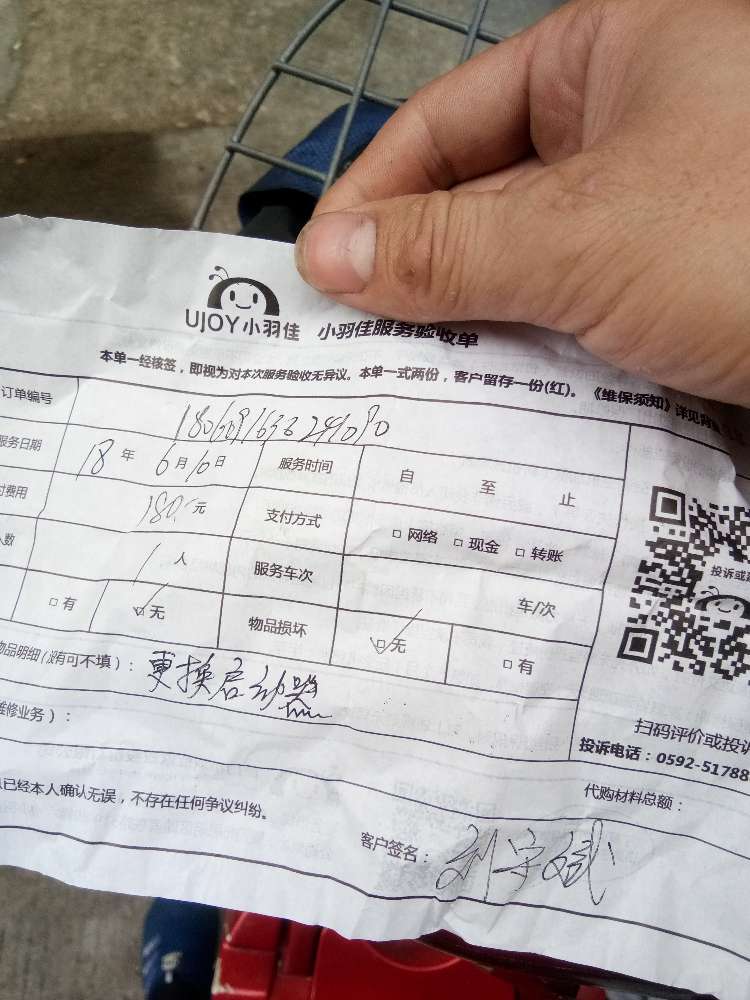 UJOY小羽佳 小羽佳服务验收单
本单一经核签，即视为对本次服务验收无异议。本单一式两份，客户留存一份(红)。《维保须知》详见背
订单编号
服务日期 18年 6月10日 服务时间 自 至 止
付费用 180.-元 支付方式 □ 网络 □ 现金 □ 转账
人数 1人 服务车次 车/次
□ 有 ☑无 物品损坏 ☑无 □ 有
投诉或
物品明细(没有可不填)：更换启动器
维修业务)：
扫码评价或投诉
投诉电话：0592-51788
代购材料总额：
已经本人确认无误，不存在任何争议纠纷。
客户签名：刘宇斌